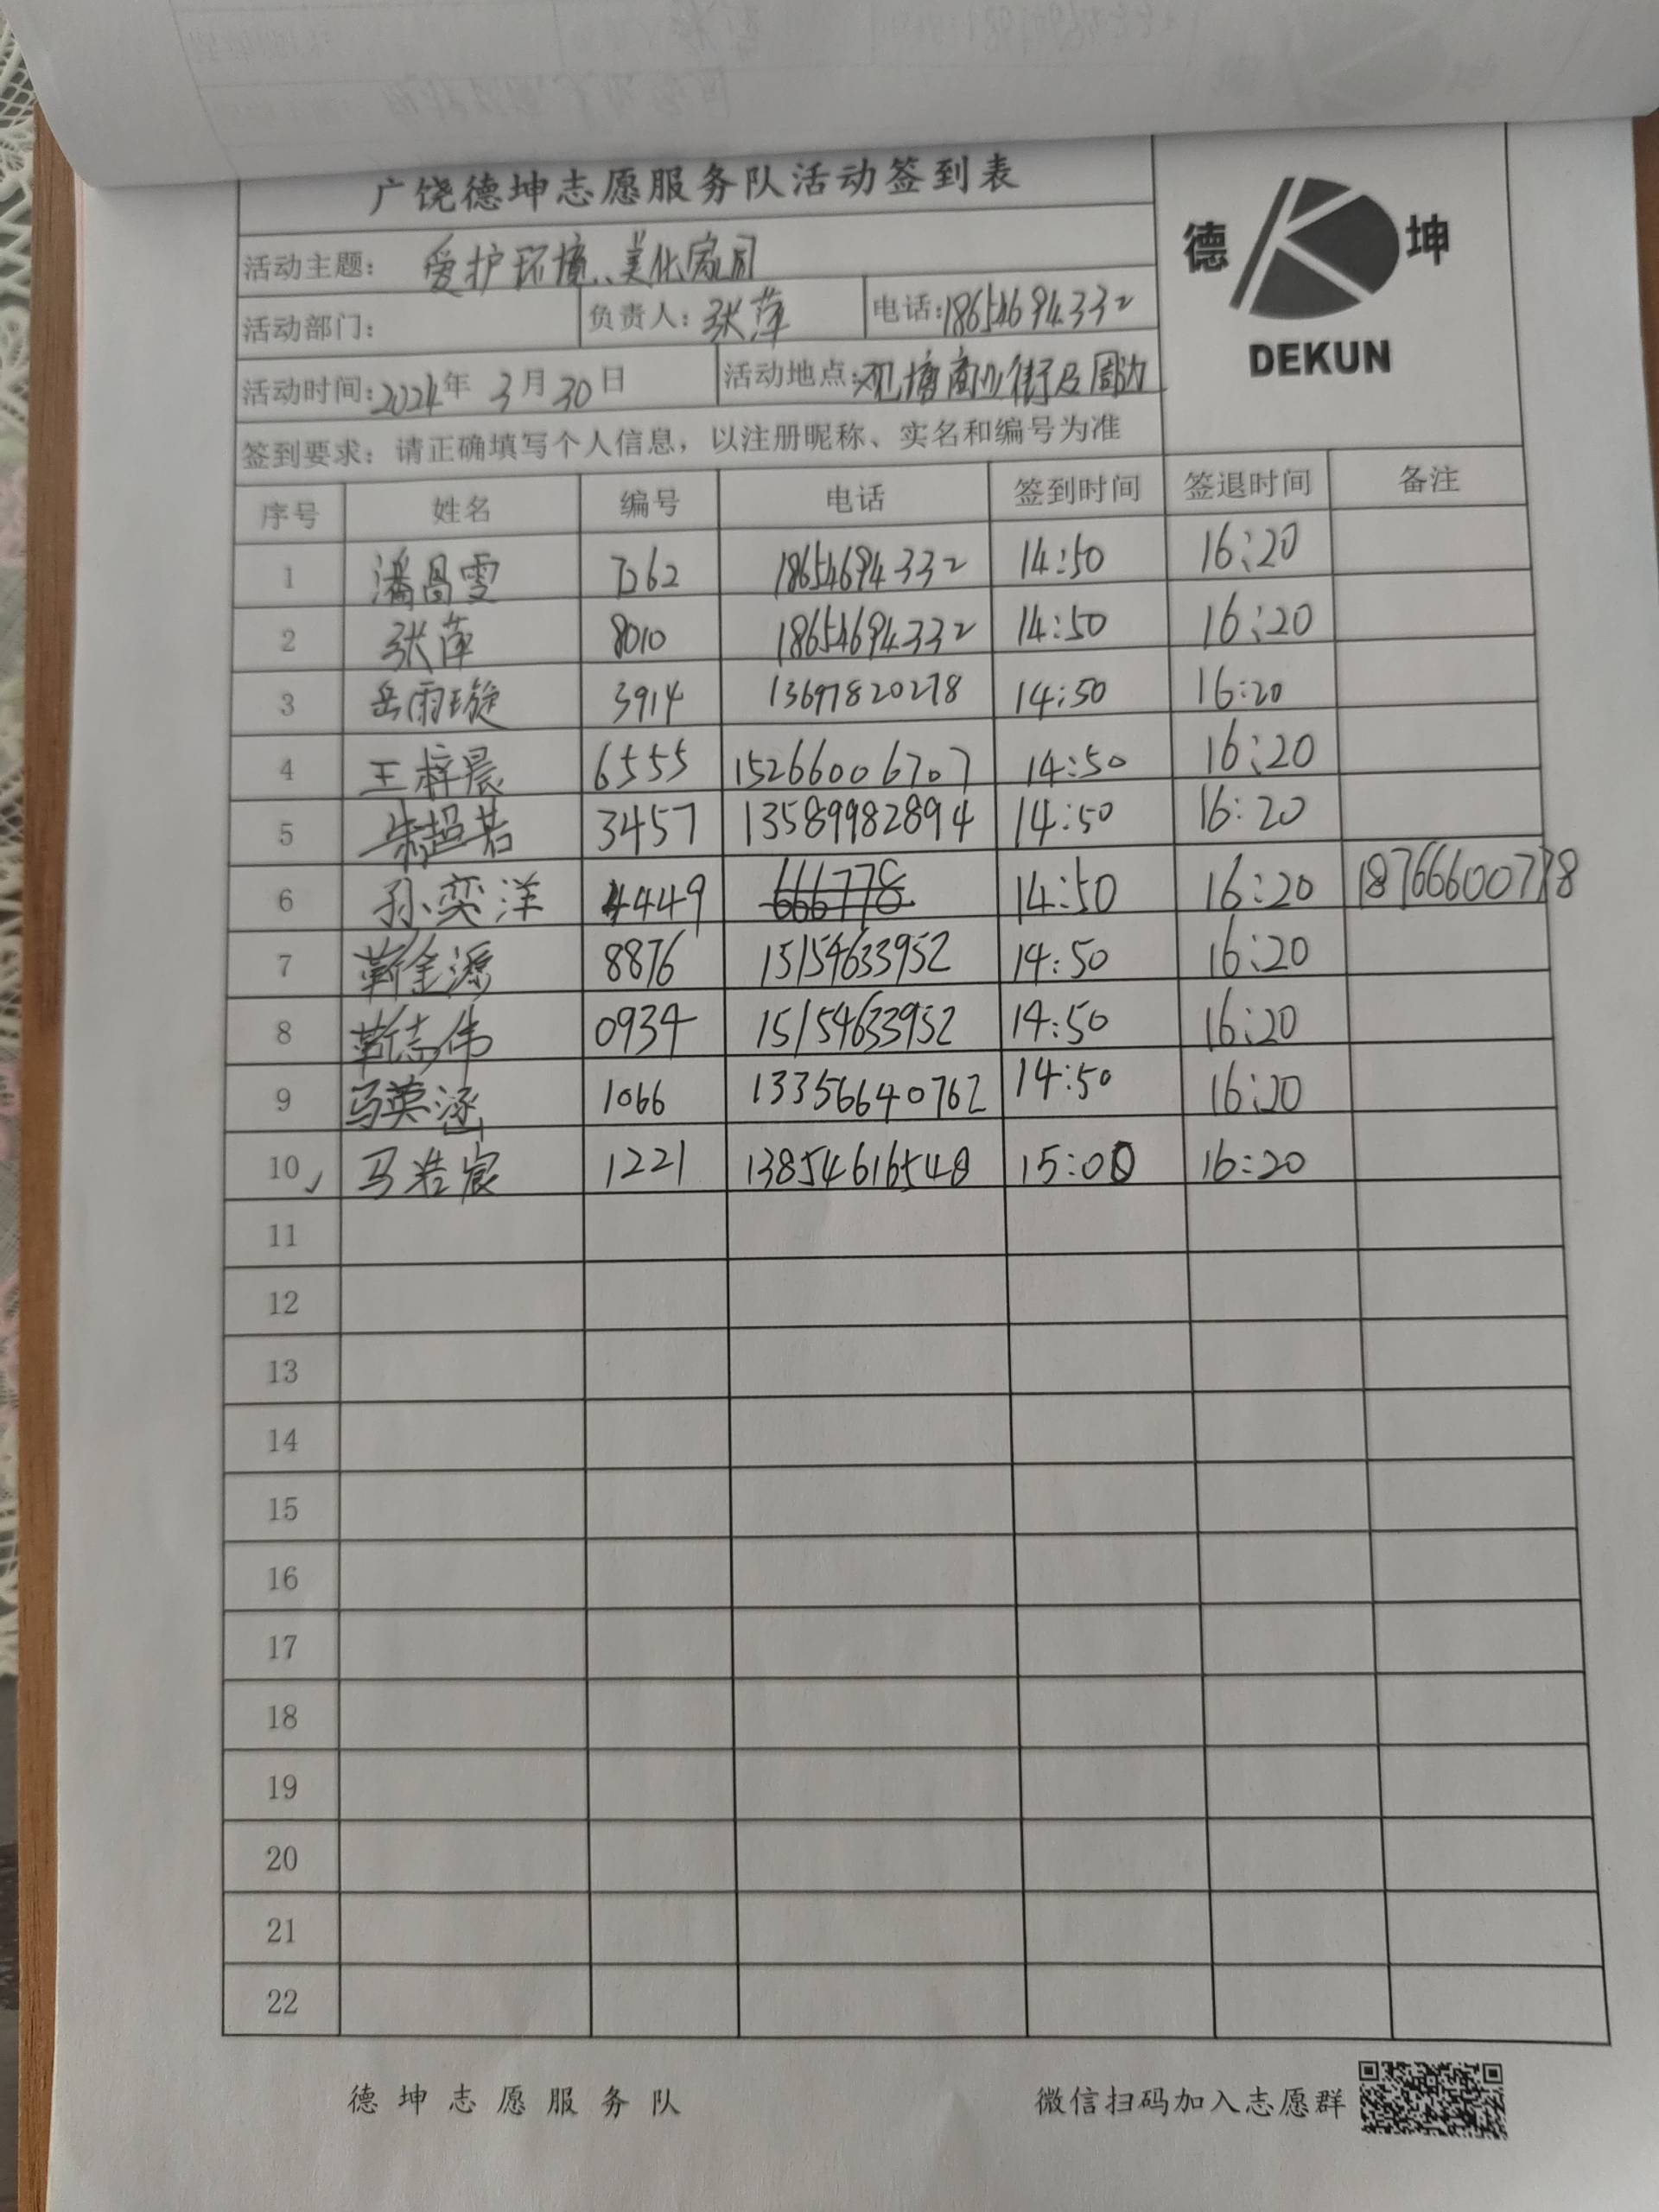 广饶德坤志愿服务队活动签到表
德 坤
DEKUN
活动主题： 爱护环境、美化家园
活动部门： 负责人：张萍 电话：18654694332
活动时间：2024年 3月30日 活动地点：观塘商业街及周边
签到要求：请正确填写个人信息，以注册昵称、实名和编号为准
序号 姓名 编号 电话 签到时间 签退时间 备注
1 潘昌雯 7262 18654694332 14:50 16:20
2 张萍 8010 18654694332 14:50 16:20
3 岳雨璇 3914 13697820278 14:50 16:20
4 王梓晨 6555 15266006707 14:50 16:20
5 朱超若 3457 13589982894 14:50 16:20
6 孙奕洋 4449 666778 14:50 16:20 18766600778
7 靳金源 8876 15154633952 14:50 16:20
8 靳志伟 0934 15154633952 14:50 16:20
9 马英涵 1066 13356640762 14:50 16:20
10 马浩宸 1221 13854616548 15:00 16:20
11
12
13
14
15
16
17
18
19
20
21
22
德坤志愿服务队 微信扫码加入志愿群